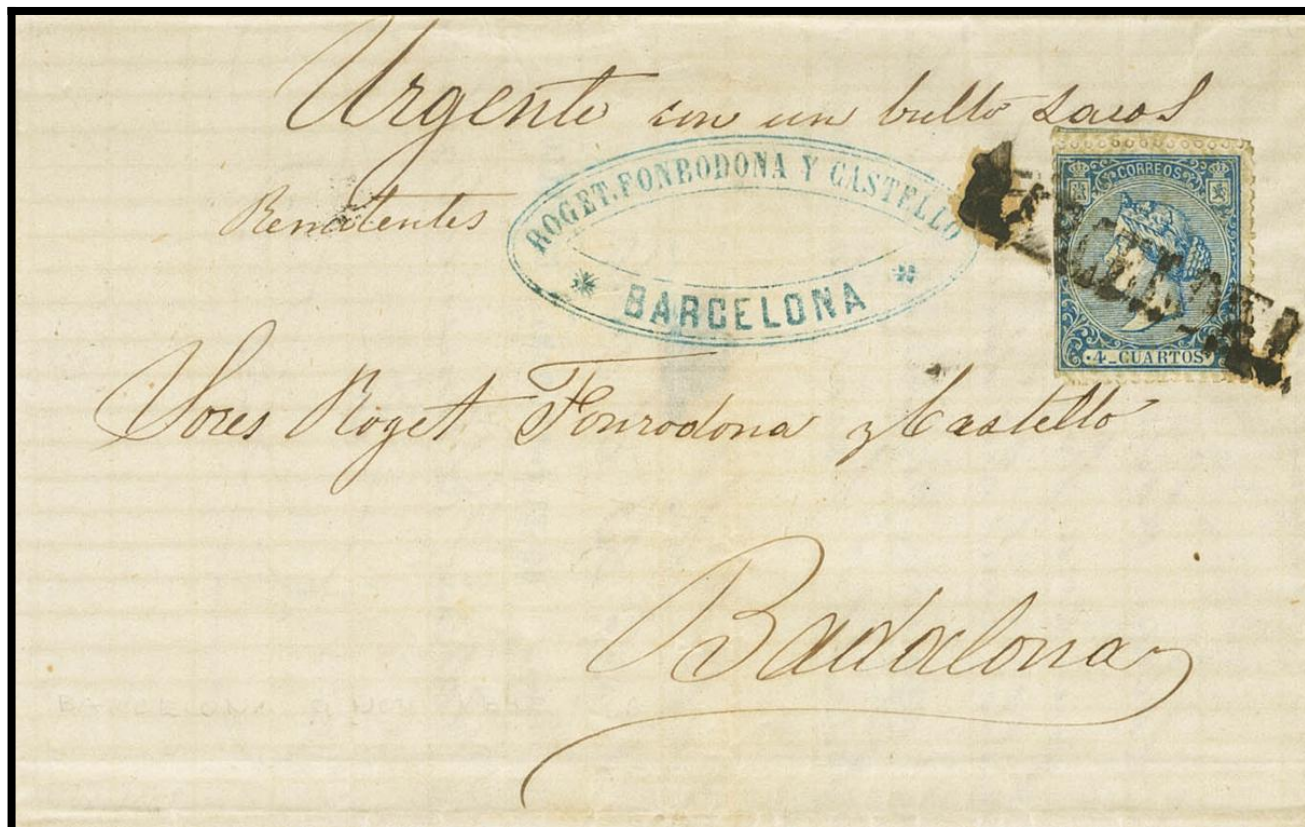 Urgente con un bulto sacos
Remitentes
ROGET, FONRODONA Y CASTELLO
BARCELONA
CORREOS
4 CUARTOS
Sores Roget Fonrodona y Castelló
Badalona